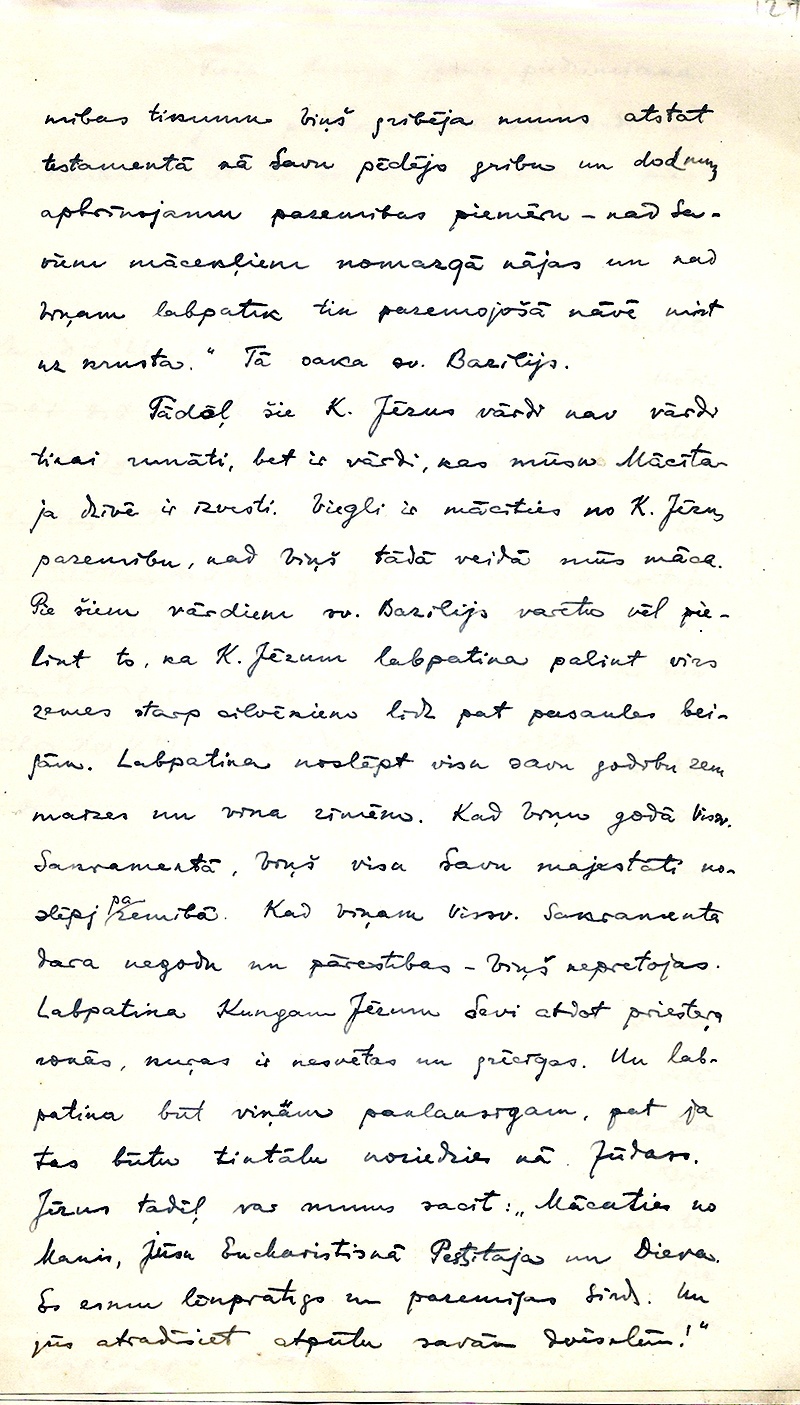 127
mības tikumu Viņš gribēja mums atstāt
testamentā kā Savu pēdējo gribu un dod mums
apbrīnojamu pazemības piemēru – kad Sa-
viem mācekļiem nomazgā kājas un kad
Viņam labpatīk tik pazemojošā nāvē mirt
uz krusta." Tā saka sv. Bazilijs.
Tādēļ šie K. Jēzus vārdi nav vārdi
tikai runāti, bet ir vārdi, kas mūsu Mācīta-
ja dzīvē ir izvesti. Viegli ir mācīties no K. Jēzus
pazemību, kad Viņš tādā veidā mūs māca.
Pie šiem vārdiem sv. Bazilijs varētu vēl pie-
likt to, ka K. Jēzum labpatika palikt virs
zemes starp cilvēkiem līdz pat pasaules bei-
gām. Labpatika noslēpt visu savu godību zem
maizes un vīna zīmēm. Kad Viņu godā Vissv.
Sakramentā, Viņš visu Savu majestāti no-
slēpj pazemībā. Kad Viņam Vissv. Sakramentā
dara negodu un pārestības – Viņš nepretojas.
Labpatika Kungam Jēzum Sevi atdot priestera
rokās, kuŗas ir nesvētas un grēcīgas. Un lab-
patika būt viņām paklausīgam, pat ja
tas būtu tiktālu noziedzies kā Jūdass.
Jēzus tādēļ var mums sacīt: „Mācaties no
Manis, jūsu Eucharistiskā Pestītāja un Dieva.
Es esmu lēnprātīgs un pazemīgas Sirds. Un
jūs atradīsiet atpūtu savām dvēselēm!"